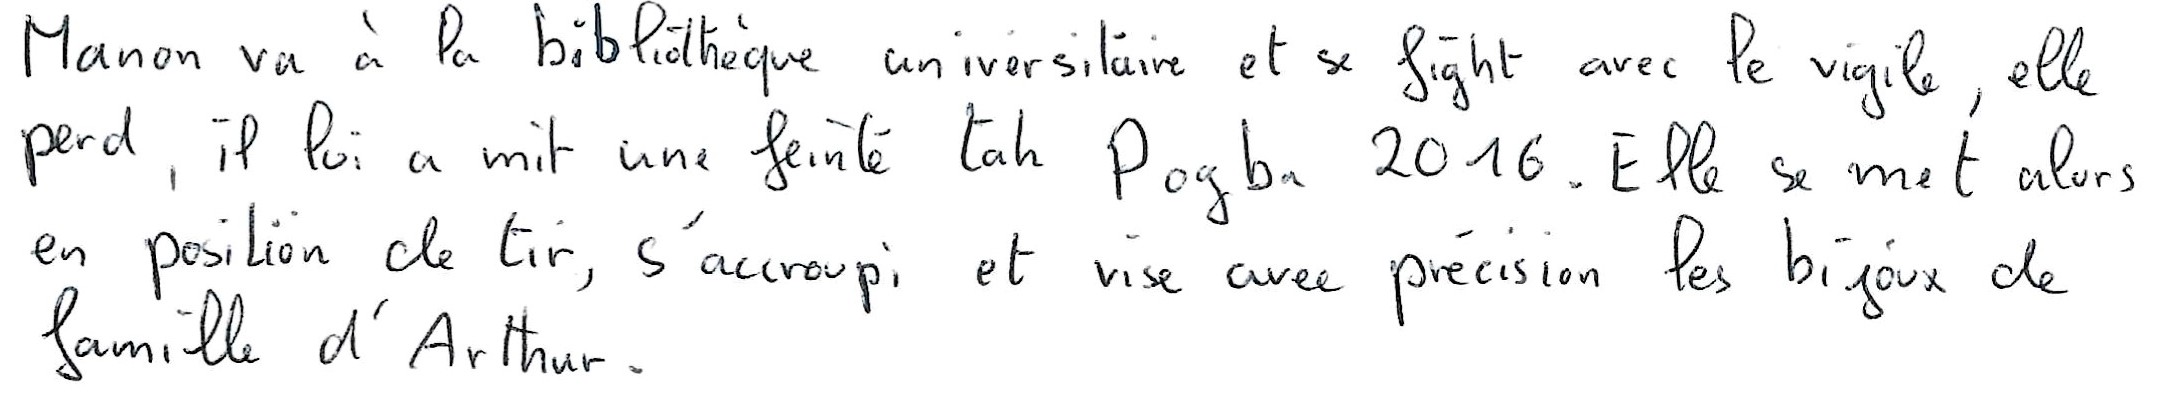 Manon va à la bibliothèque universitaire et se fight avec le vigile, elle
perd, il lui a mit une feinte tah Pogba 2016. Elle se met alors
en position de tir, s'accroupi et vise avec précision les bijoux de
famille d'Arthur.